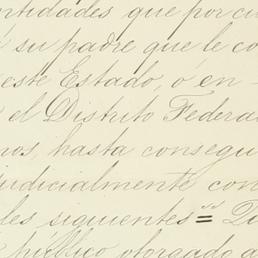 ntidades que por cu
su padre que le co
este Estado, o en-
el Distrito Federa
nos, hasta consegu
judicialmente con
les siguientes "=
publico otorgado a